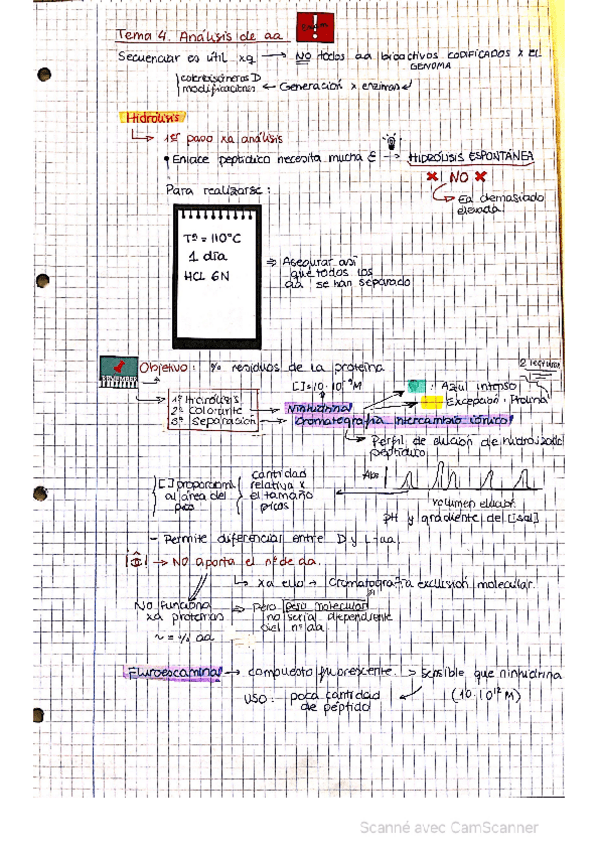 Tema 4. Análisis de aa
Secuenciar es útil xq → NO todos aa bioactivos CODIFICADOS X EL GENOMA
Generación x enzimas
modificaciones
Hidrólisis
1er paso xa análisis
• Enlace peptídico necesita mucha E → HIDRÓLISIS ESPONTÁNEA
✖ NO ✖
Ea demasiado
elevada
Para realizarse:
Tª = 110ºC
1 día
HCL 6N
⇒ Asegurar así
que todos los
aa se han separado
Objetivo: % residuos de la proteína
1º Hidrólisis
2º Colorante → Ninhidrina
3º Separación → Cromatografía intercambio iónico
: Azul intenso
Excepción: Prolina
Perfil de elución de hidrolizado
peptídico
[ ] proporcional
al área del
pico
cantidad
relativa x
el tamaño
picos
Abs
volumen eluído
pH y gradiente del [sal]
- Permite diferenciar entre D y L-aa
¡ ! → NO aporta el nº de aa.
xa ello → Cromatografía exclusión molecular.
No funciona
xa proteínas
~ = % aa
⇒ Pero peso molecular
no sería dependiente
del nº aa
Fluroescamina → compuesto fluorescente. > sensible que ninhidrina
(10·10¹²M)
USO: poca cantidad
de péptido
Scanné avec CamScanner